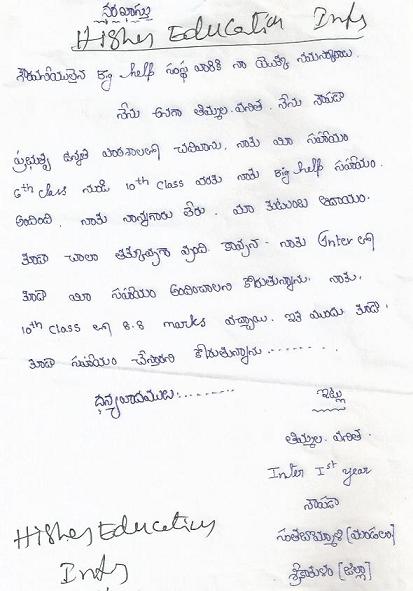 దరఖాస్తు
Higher Education Inds
గౌరవనీయులైన Big help సంస్థ వారికి నా యొక్క నమస్కారాలు.
నేను అనగా తిమ్మల. వనిత. నేను నౌపడా
ప్రభుత్వ ఉన్నత పాఠశాలలో చదివాను. నాకు మీ సహాయం
6th class నుండి 10th class వరకు నాకు Big help సహాయం
అందింది. నాకు నాన్నగారు లేరు. మా కుటుంబ ఆదాయం
కూడా చాలా తక్కువగా వుంది. కావున నాకు Inter లో
కూడా మీ సహాయం అందించాలని కోరుతున్నాను. నాకు
10th class లో 8.8 marks వచ్చాయి. ఇక ముందు కూడా
కూడా సహాయం చేస్తారని కోరుతున్నాను........
ధన్యవాదములు:.........
ఇట్లు
తిమ్మల. వనిత.
Inter Ist year
నౌపడా
సంతబొమ్మాళి [మండలం]
శ్రీకాకుళం [జిల్లా]
Higher Education
Inds